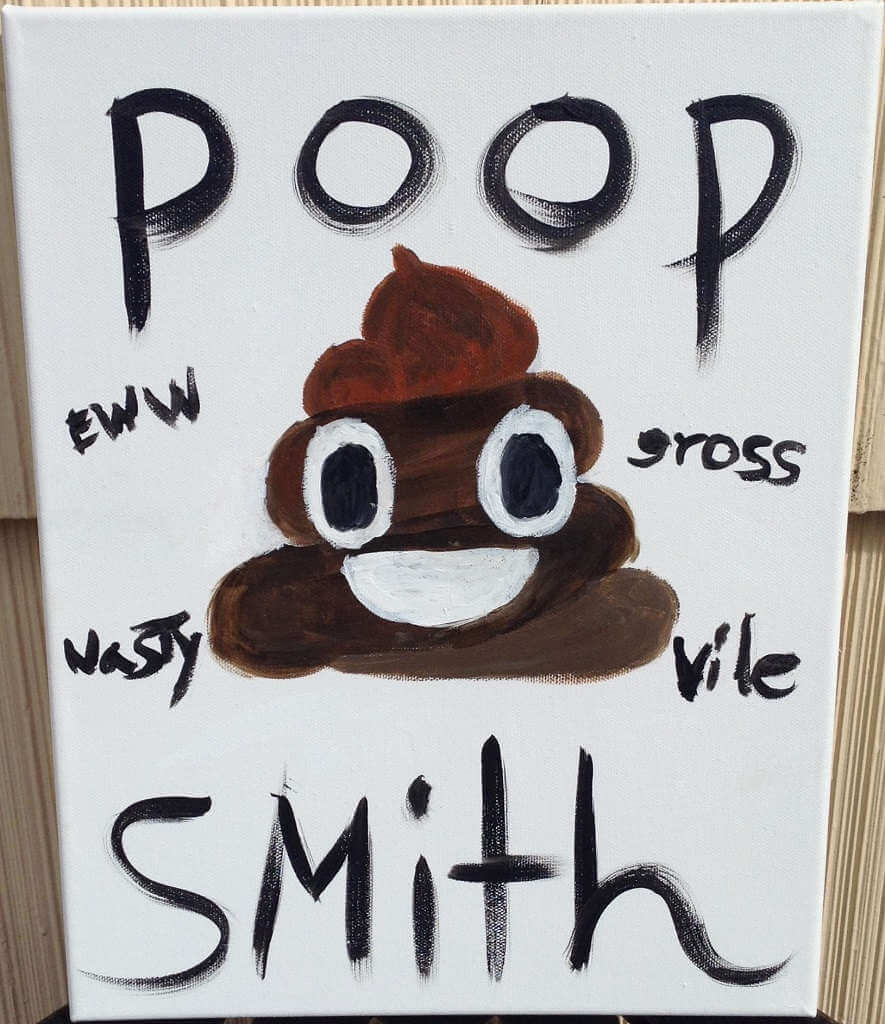 POOP
EWW
gross
NaSTy
Vile
SMith